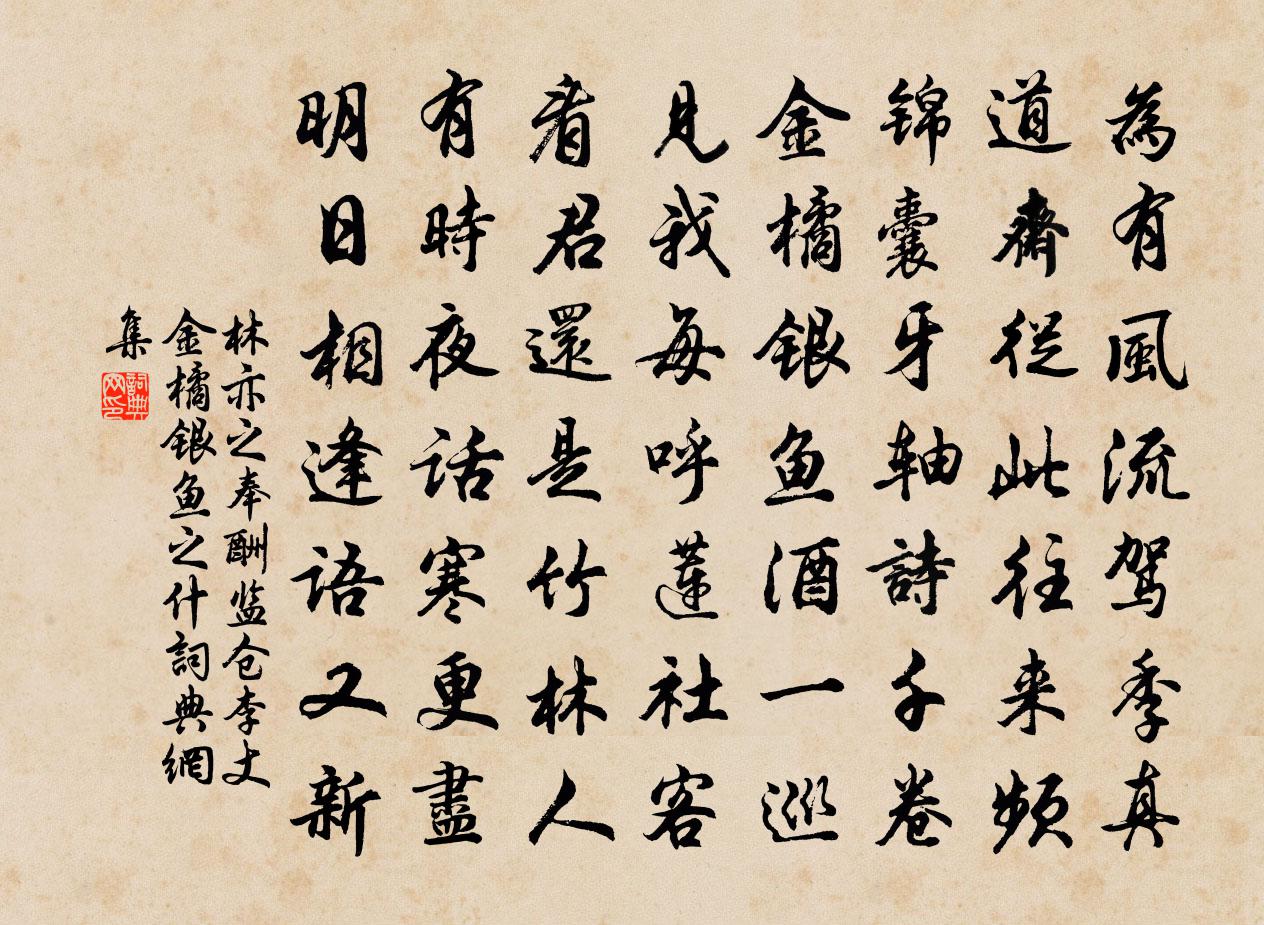 為有風流駕季真
道齋從此往来頻
錦囊牙軸詩千卷
金橘銀魚酒一巡
見我每呼蓮社客
看君還是竹林人
有時夜話寒更盡
明日相逢語又新
林亦之奉酬监仓李丈
金橘銀魚之什詞典網
集
詞典网印